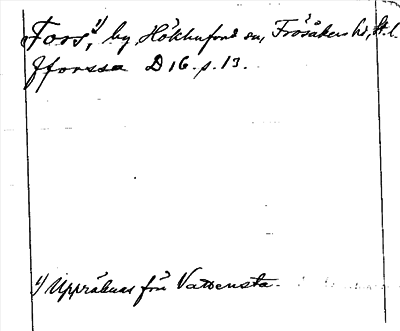 Fors,¹⁾ by, Hökhufvud sn, Frösåkers hd, St. l.
fforssa D 16. s. 13.
¹⁾ Uppräknas från Vattensta.